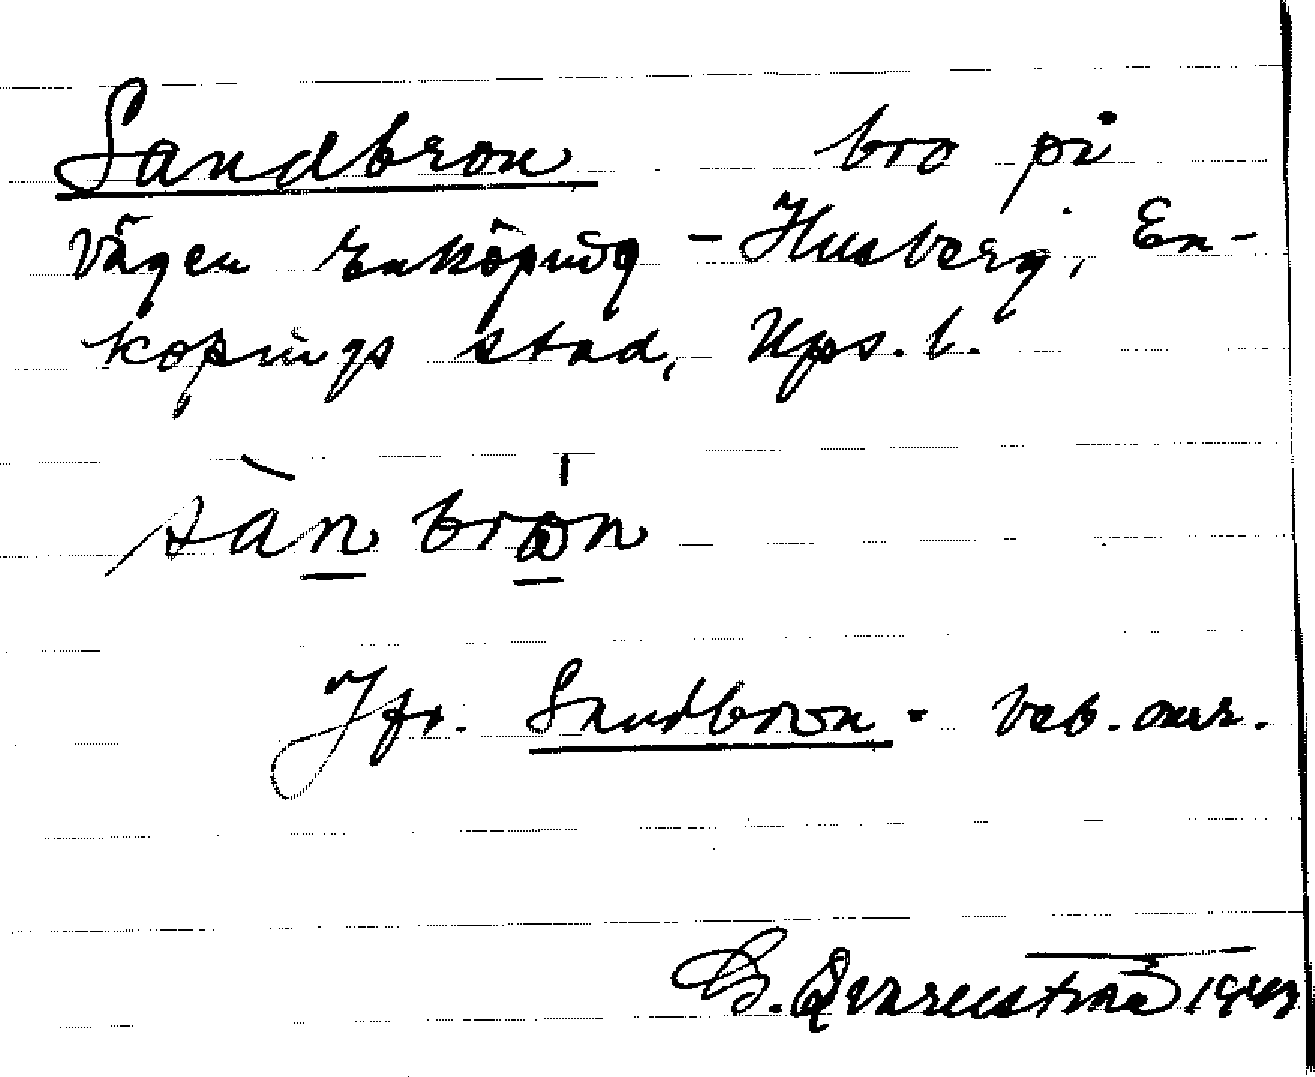 Sandbron bro på
vägen Enköping - Husberg, En-
köpings stad, Ups. l.
sàn brón
Jfr. Sandbron - beb. omr.